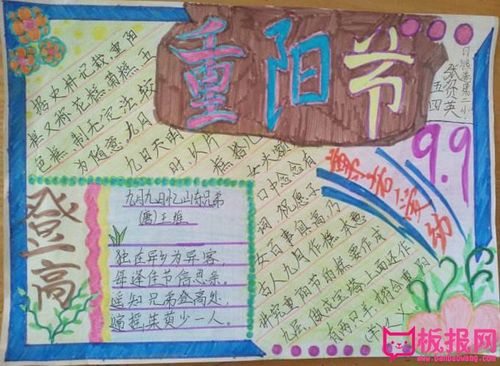 重阳节
九月九日忆山东兄弟
(唐)王维
独在异乡为异客，
每逢佳节倍思亲。
遥知兄弟登高处，
遍插茱萸少一人。
登高
据史料记载重阳
糕又称花糕菊糕五
色糕制无定法较
为随意九月
九日天明
时以片
糕搭
女头额
口中念念有
词祝愿子
女百事俱高乃
古人九月作糕本意
讲究重阳节的糕要作成
九层
9.9
板报网
www.banbaowang.com